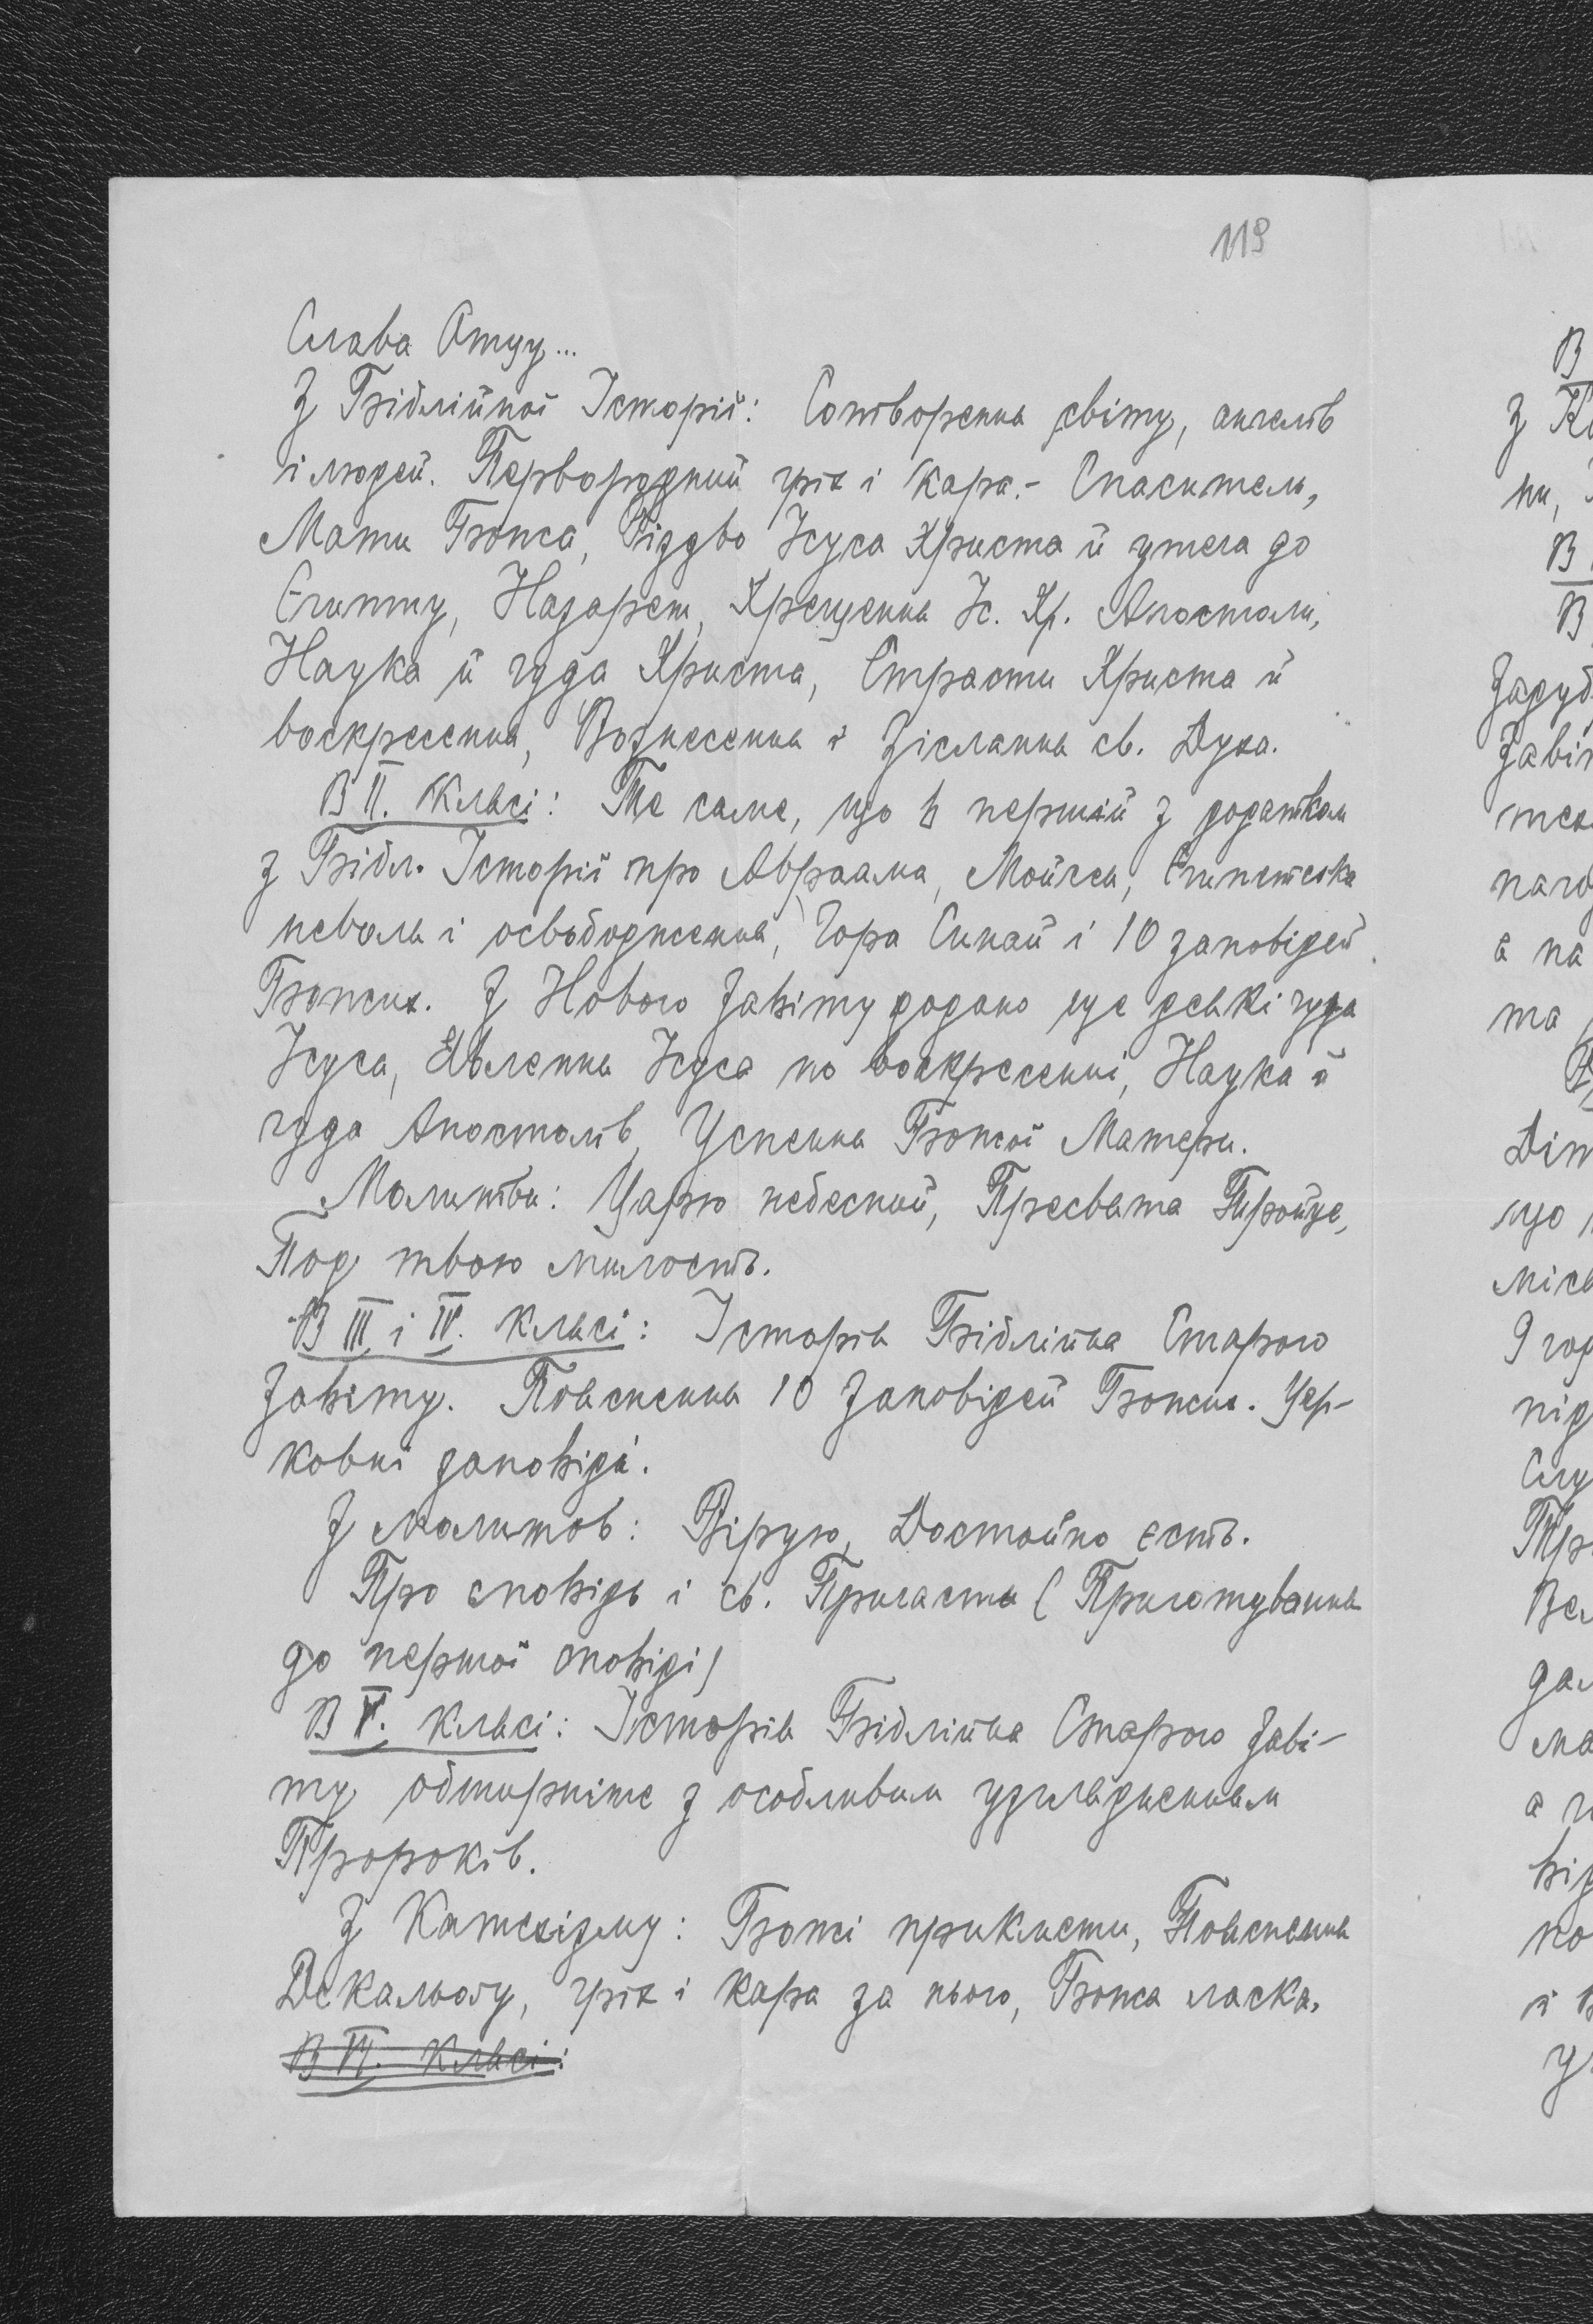 119
Слава Отцу...
З Біблійної Історії: Сотворення світу, ангелів
і людей. Первородний гріх і кара. – Спаситель,
Мати Божа, Різдво Ісуса Христа й утеча до
Єгипту, Назарет, Хрещення Іс. Хр. Апостоли,
Наука й чуда Христа, Страсти Христа й
воскресення, Вознесення і Зіслання св. Духа.
В II. клясі: Те саме, що в першій з додатком
з Бібл. Історії про Авраама, Мойсея, Єгипетська
неволя і освободження, Гора Синай і 10 заповідей
Божих. З Нового Завіту додано ще деякі чуда
Ісуса, Явлення Ісуса по воскресенні, Наука й
чуда Апостолів, Успення Божої Матери.
Молитви: Царю небесний, Пресвята Тройце,
Под твою милость.
В III і IV. клясі: Історія Біблійна Старого
Завіту. Пояснення 10 Заповідей Божих. Цер-
ковні заповіді.
З молитов: Вірую, Достойно єсть.
Про сповідь і св. Причастя (Приготування
до першої сповіді)
В V. клясі: Історія Біблійна Старого Заві-
ту обширніше з особливим узглядненням
Пророків.
З Катехізму: Божі прикмети, Пояснення
Декалогу, гріх і кара за нього, Божа ласка.
В VI. клясі: